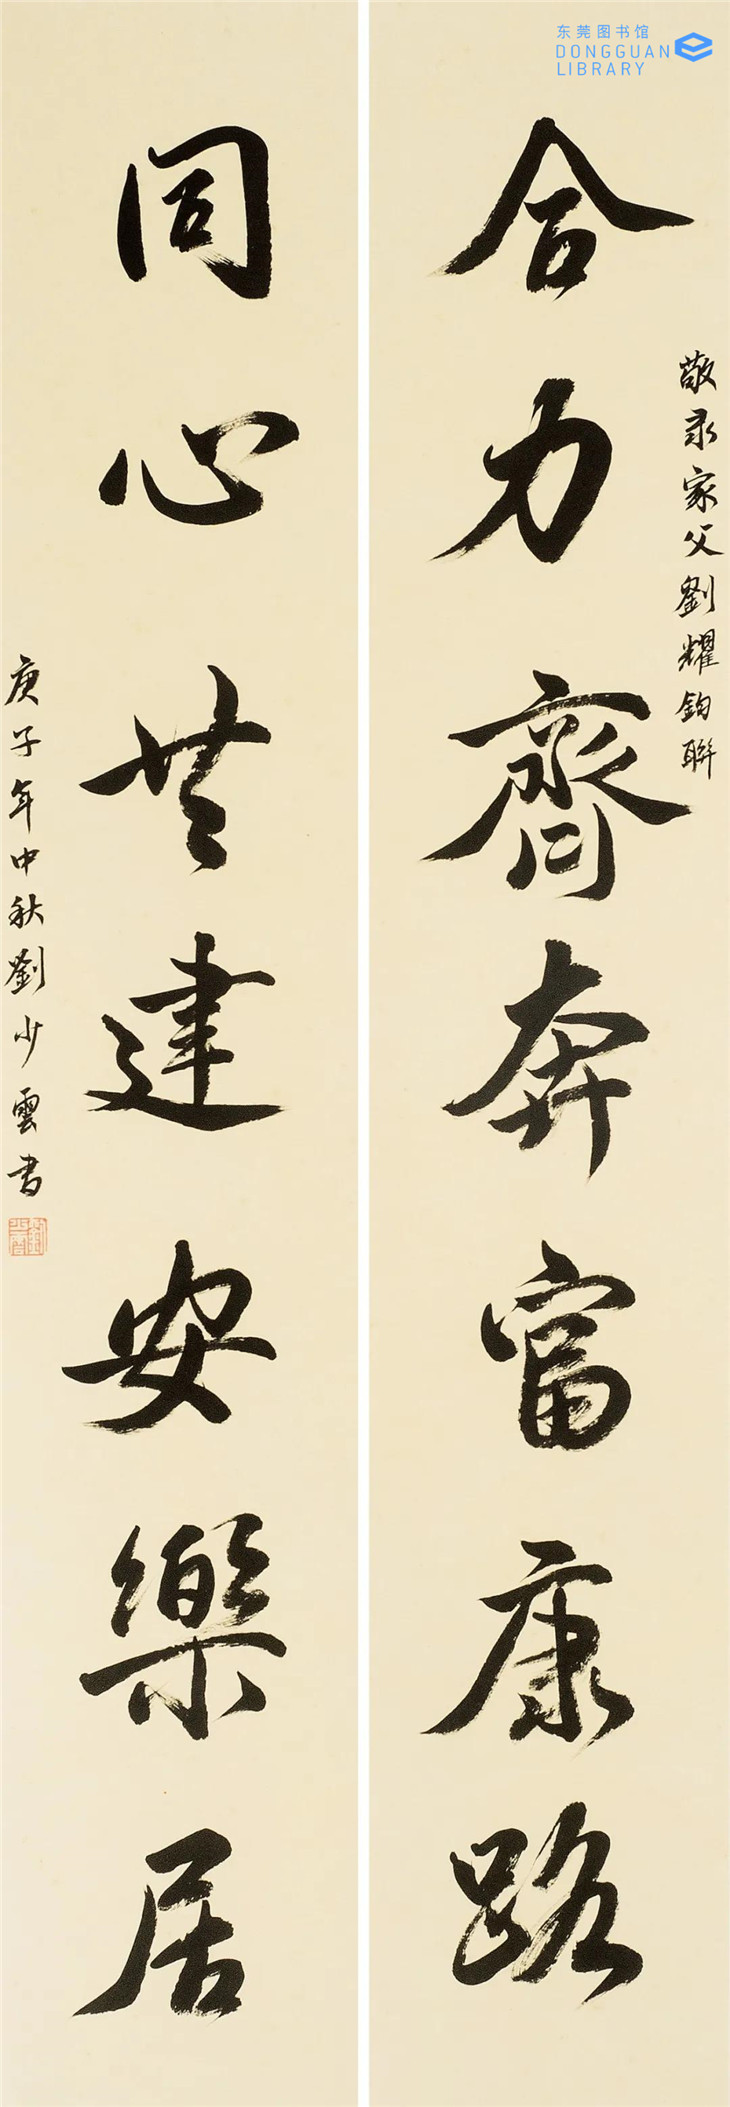 东莞图书馆
DONGGUAN
LIBRARY
敬录家父劉耀鈞聯
合力齊奔富康路
同心共建安樂居
庚子年中秋劉少雲书